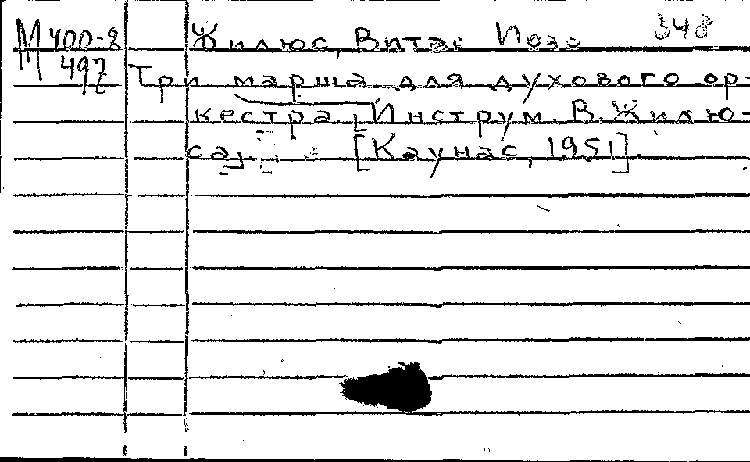 М 400-8 Жилюс, Витас Иозо 348
497 Три марша для духового ор-
кестра. Инструм. В. Жилю-
са. [Каунас, 1951]